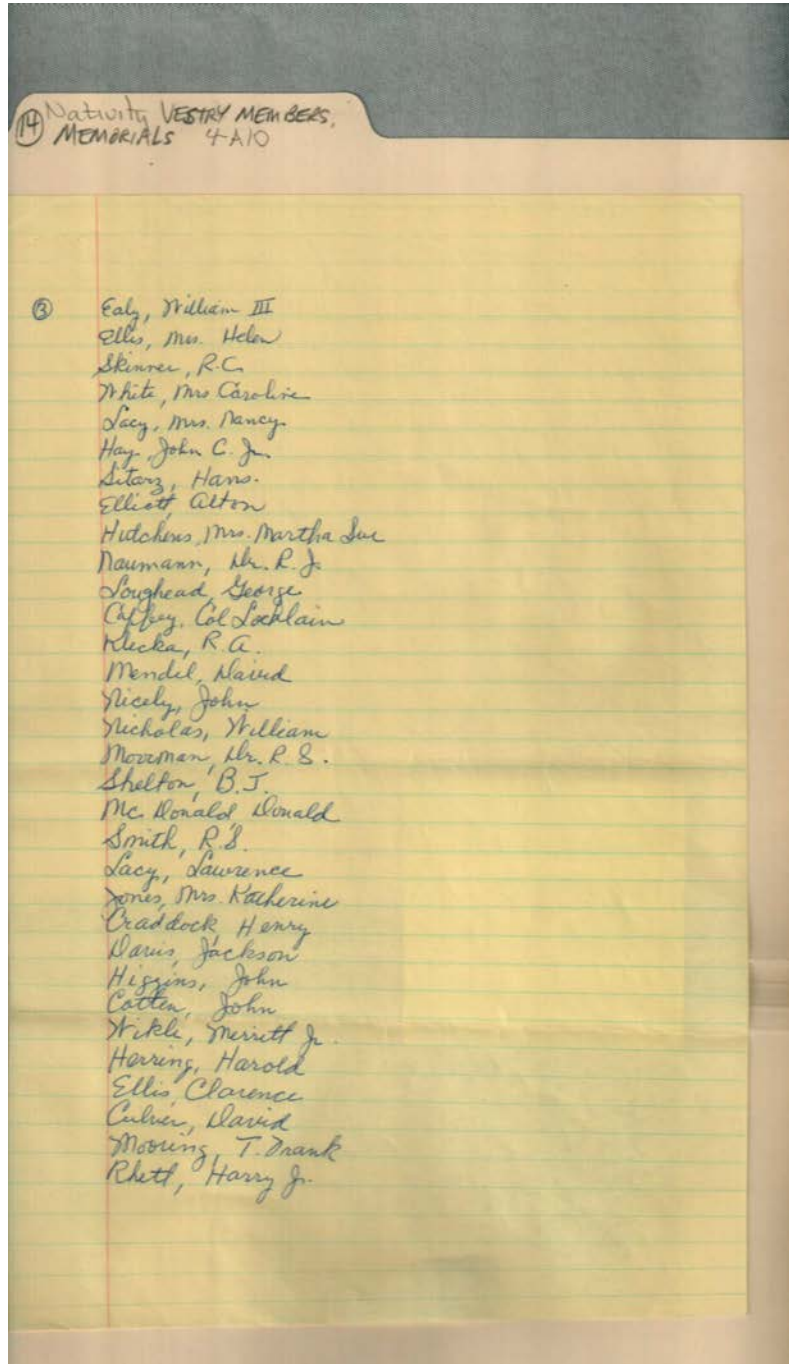 14 Nativity VESTRY MEMBERS,
MEMORIALS 4-A10
3 Ealy, William III
Ellis, Mrs. Helen
Skinner, R.C.
White, Mrs Caroline
Lacy, Mrs. Nancy
Hay, John C. Jr.
Sitarz, Hans.
Elliott, Alton
Hutchens, Mrs. Martha Sue
Naumann, Dr. R. J.
Loughead, George
Caffey, Col Locklain
Klecka, R.A.
Mendel, David
Nicely, John
Nicholas, William
Moorman, Dr. R. S.
Shelton, B.J.
Mc Donald, Donald
Smith, R.S.
Lacy, Lawrence
Jones, Mrs. Katherine
Craddock, Henry
Davis, Jackson
Higgins, John
Cotten, John
Wikle, Merritt Jr.
Herring, Harold
Ellis, Clarence
Culver, David
Mooring, T. Drank
Rhett, Harry Jr.